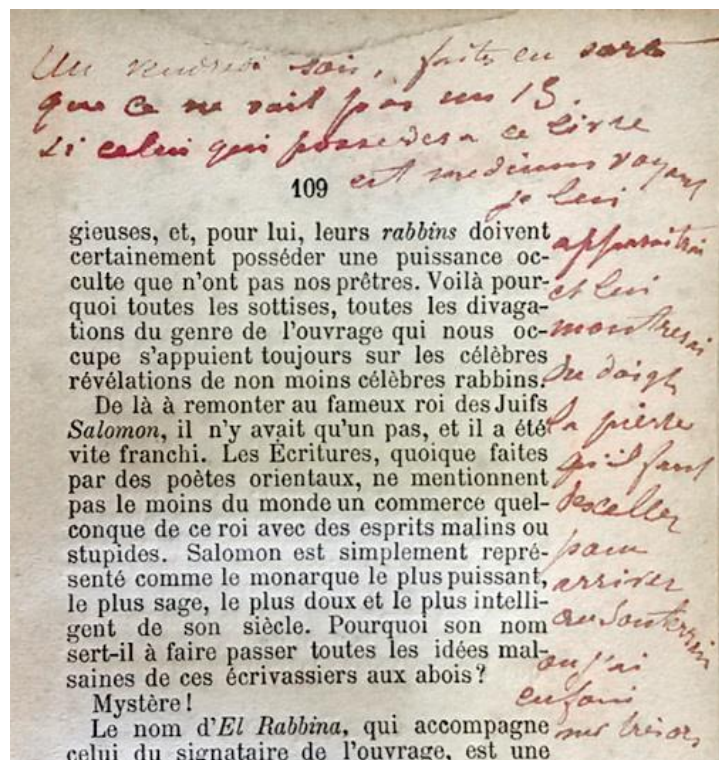 Un vendredi soir, faites en sorte
que ce ne soit pas un 13.
Si celui qui possedera ce livre
est mediums voyant
je lui
apparaitrai
et lui
montrerai
du doigt
la pierre
qu'il faut
desceller
pour
arriver
au souterrain
ou j'ai
enfoui
mes trésors
109
gieuses, et, pour lui, leurs rabbins doivent
certainement posséder une puissance oc-
culte que n'ont pas nos prêtres. Voilà pour-
quoi toutes les sottises, toutes les divaga-
tions du genre de l'ouvrage qui nous oc-
cupe s'appuient toujours sur les célèbres
révélations de non moins célèbres rabbins.
De là à remonter au fameux roi des Juifs
Salomon, il n'y avait qu'un pas, et il a été
vite franchi. Les Écritures, quoique faites
par des poètes orientaux, ne mentionnent
pas le moins du monde un commerce quel-
conque de ce roi avec des esprits malins ou
stupides. Salomon est simplement repré-
senté comme le monarque le plus puissant,
le plus sage, le plus doux et le plus intelli-
gent de son siècle. Pourquoi son nom
sert-il à faire passer toutes les idées mal-
saines de ces écrivassiers aux abois?
Mystère!
Le nom d'El Rabbina, qui accompagne
celui du signataire de l'ouvrage, est une